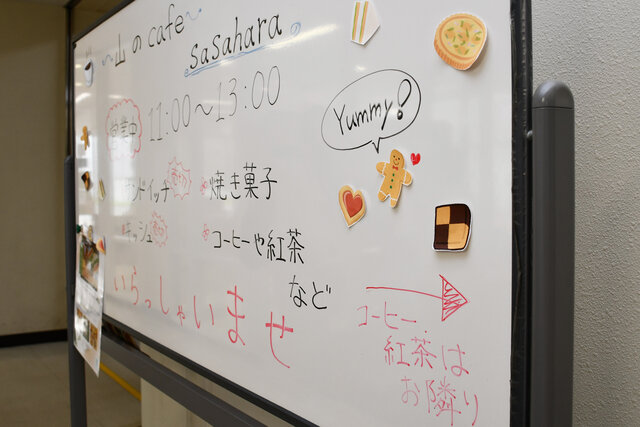 〜山のcafe〜
sasahara
11:00〜13:00
営業中
Yummy!
サンドイッチ
焼き菓子
キッシュ
コーヒーや紅茶
など
いらっしゃいませ
コーヒー、
紅茶は
お隣り